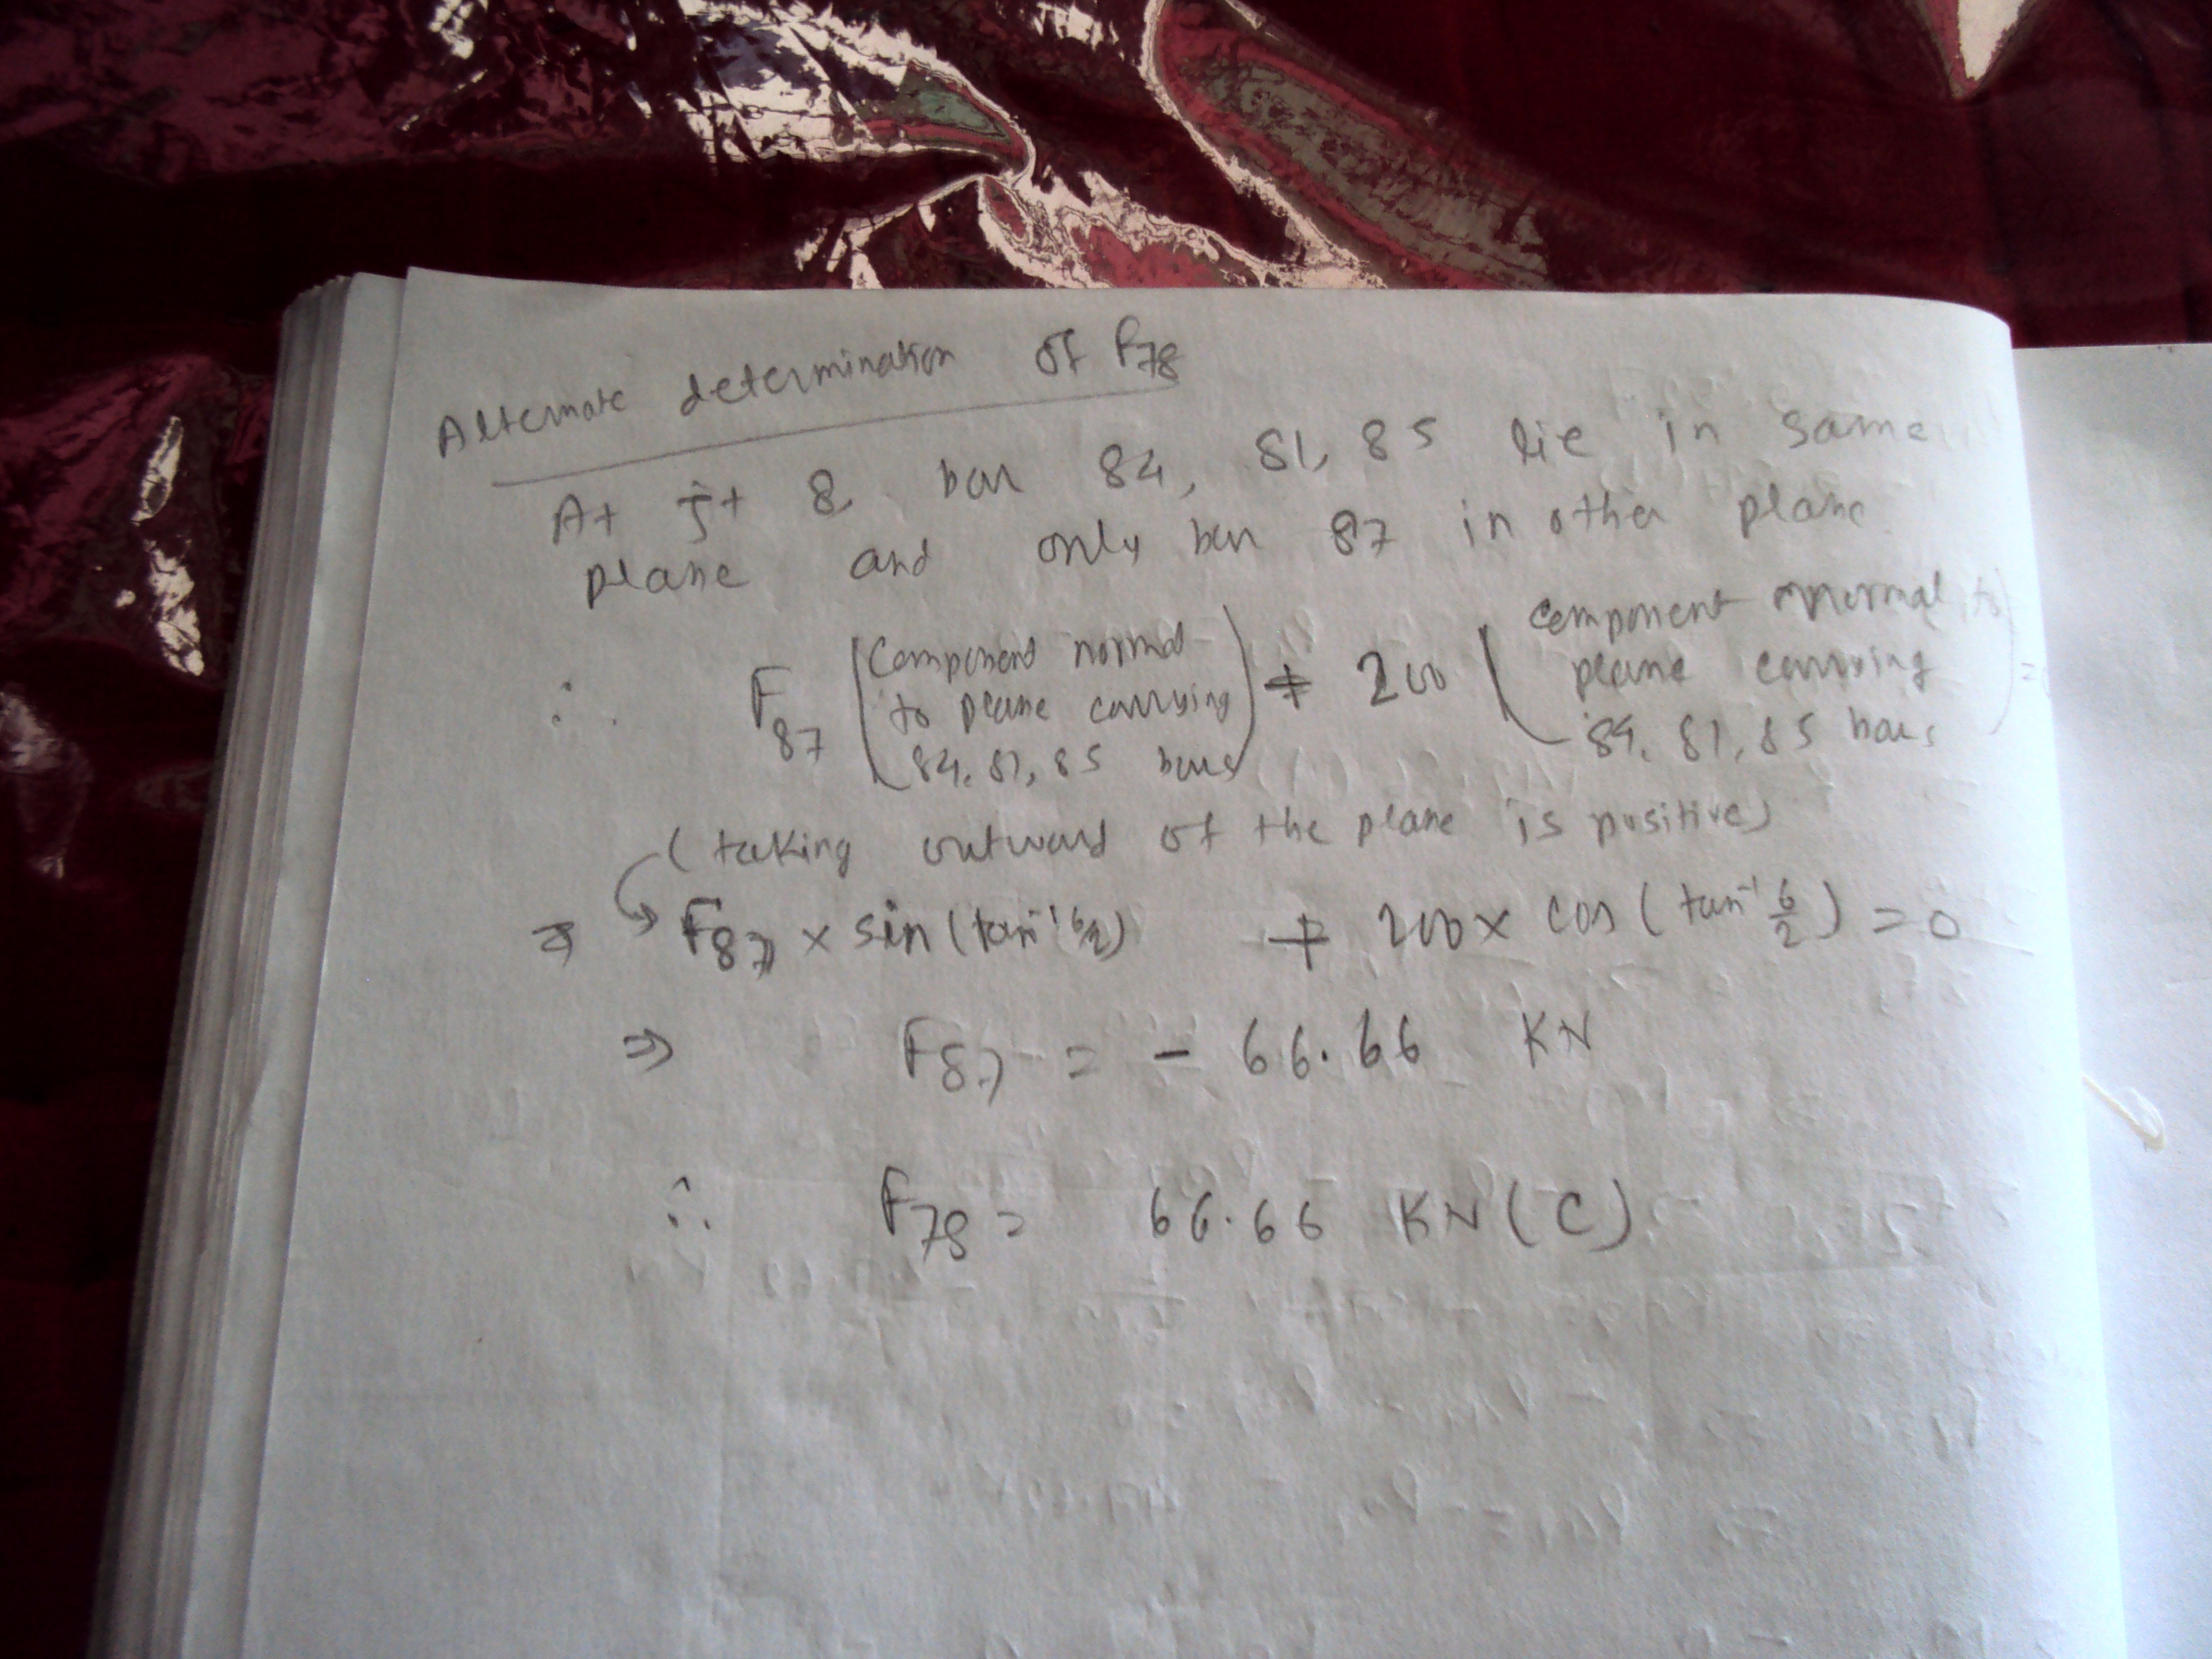 Alternate determination of F78
At jt 8, bar 84, 81, 85 lie in same
plane and only bar 87 in other plane
∴ F87 (Component normal to plane carrying 84, 81, 85 bars) + 200 (component normal to plane carrying 84, 81, 85 bars) = 0
(taking outward of the plane is positive)
⇒ F87 × sin(tan⁻¹ 6/2) + 200 × cos(tan⁻¹ 6/2) = 0
⇒ F87 = - 66.66 KN
∴ F78 = 66.66 KN (C)